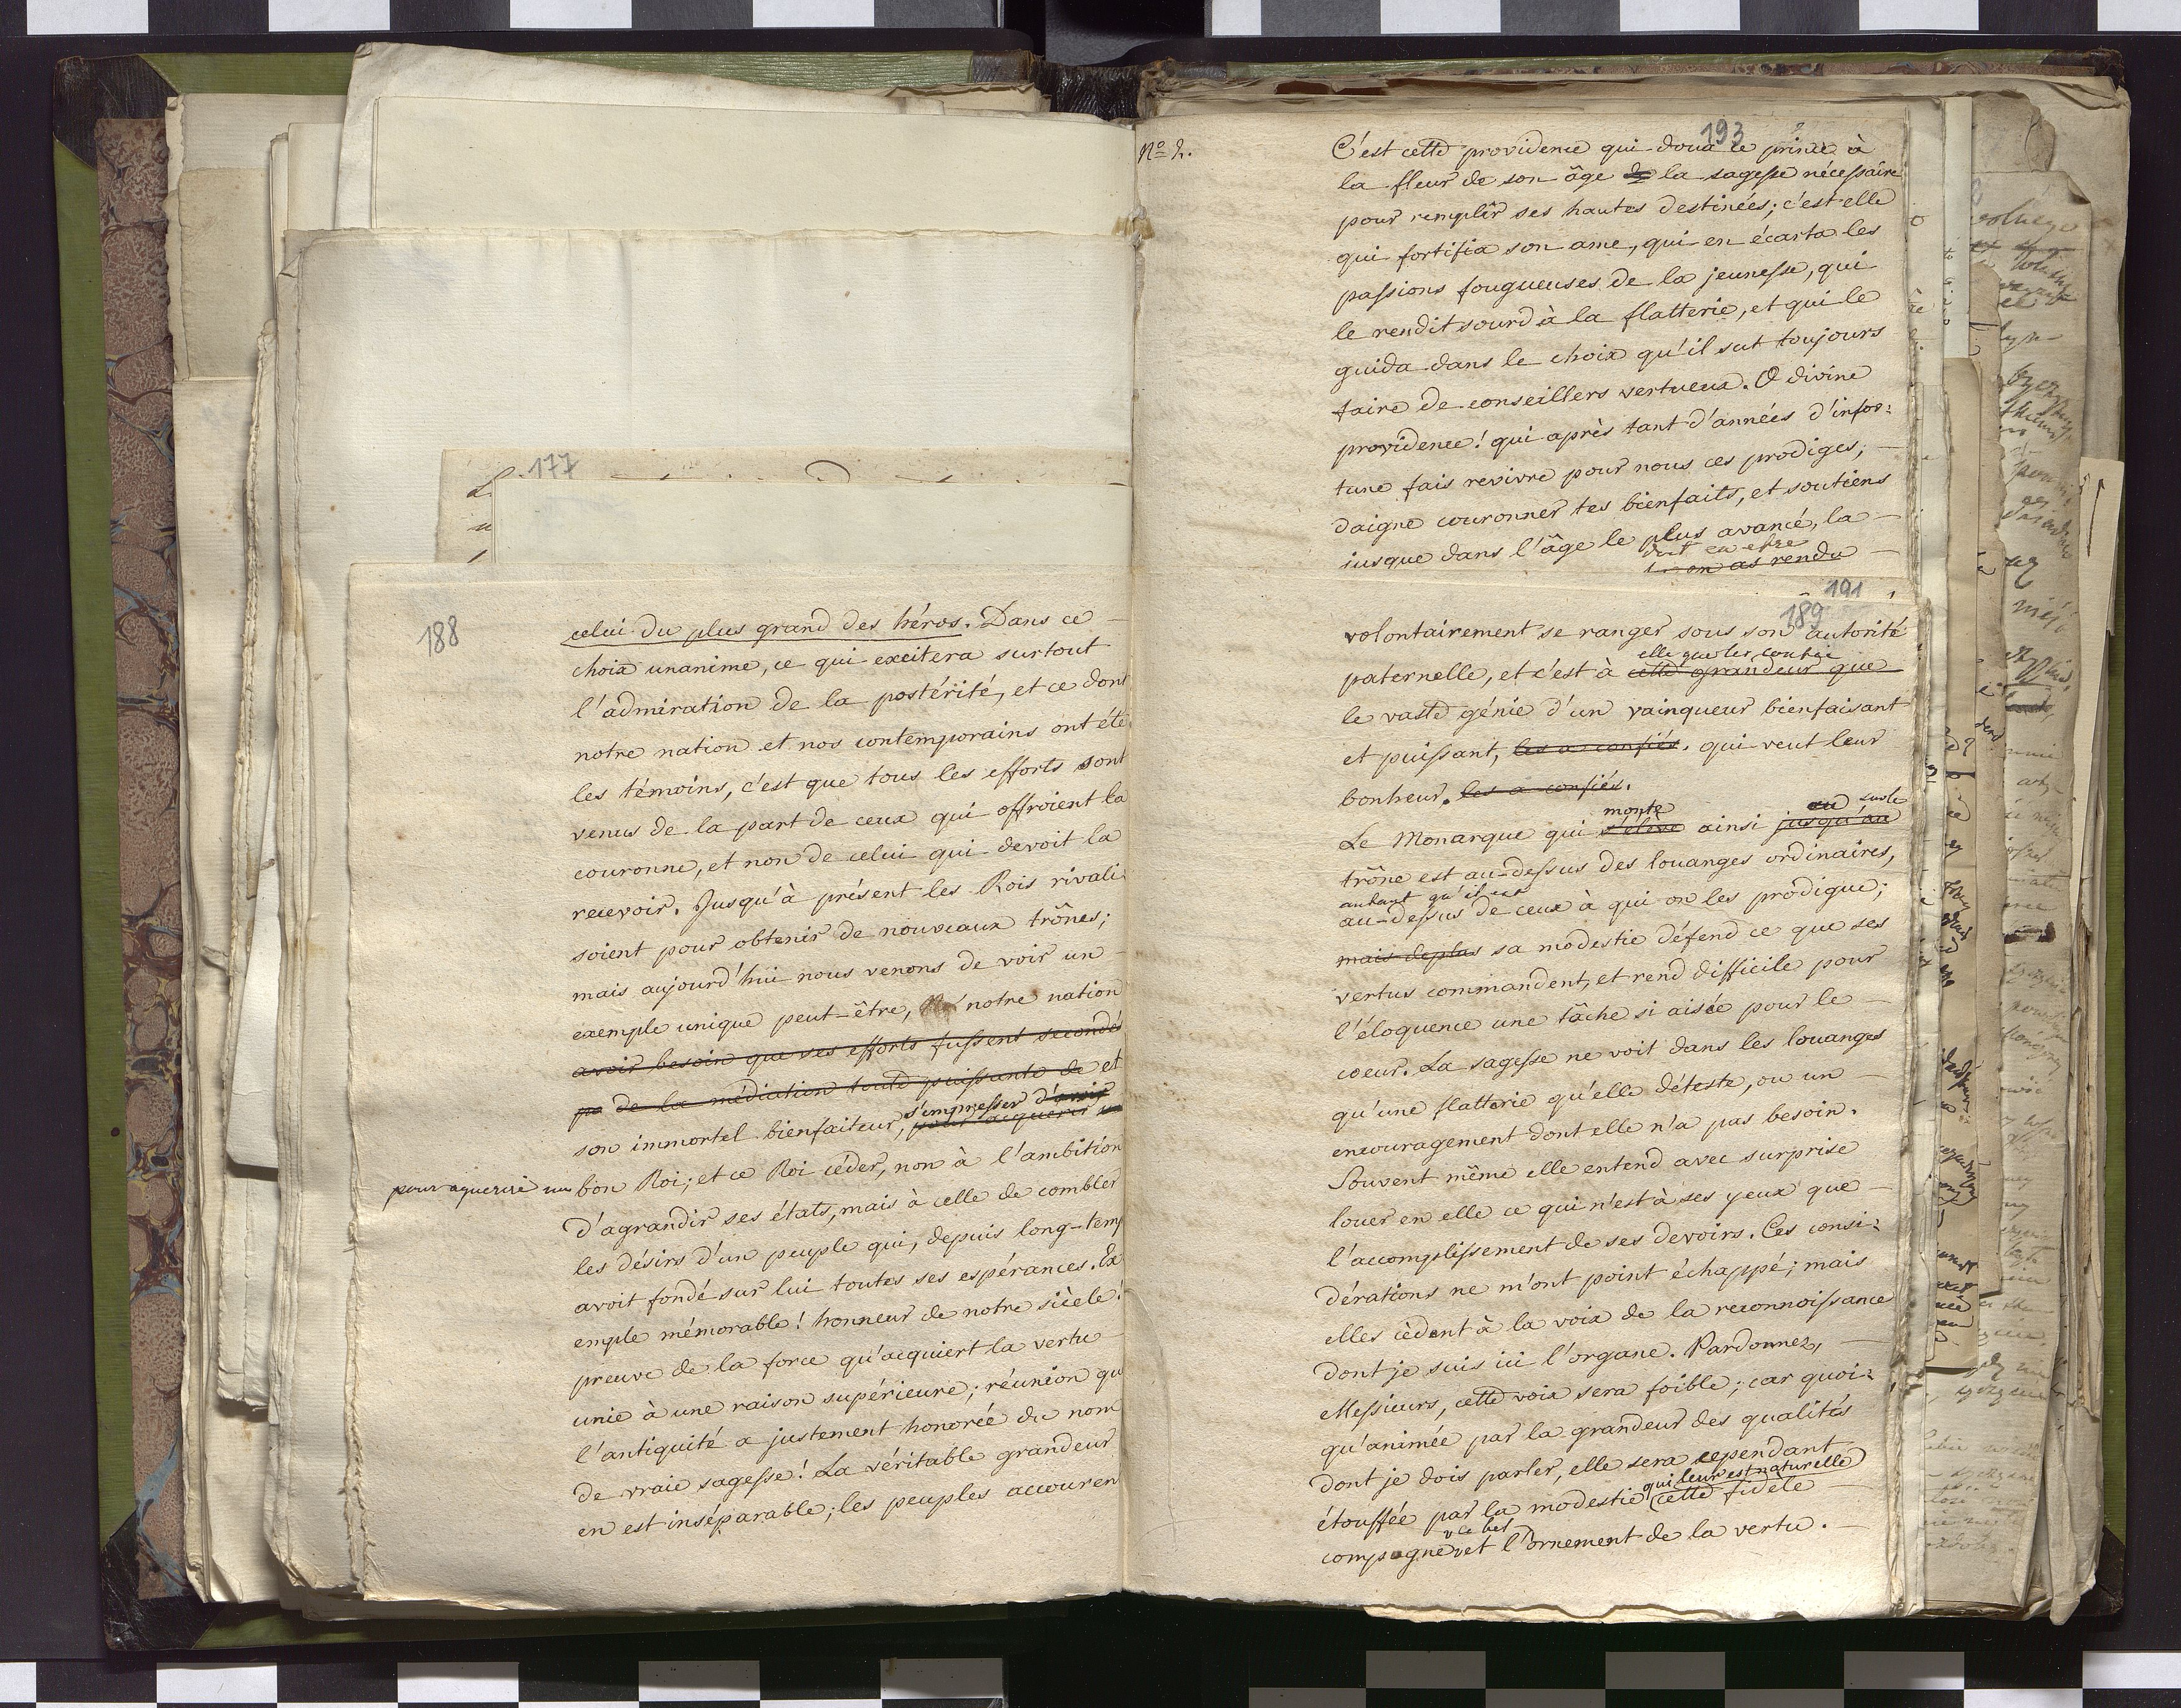 177
188
celui du plus grand des héros. Dans ce
choix unanime, ce qui excitera surtout
l'admiration de la postérité, et ce dont
notre nation et nos contemporains ont été
les témoins, c'est que tous les efforts sont
venus de la part de ceux qui offroient la
couronne, et non de celui qui devoit la
recevoir. Jusqu'à présent les Rois rivali
soient pour obtenir de nouveaux trônes;
mais aujourd'hui nous venons de voir un
exemple unique peut-être, notre nation
avoir besoin que ses efforts fussent secondés
pa de la médiation toute puissante de et
s'empresser d'avoir
son immortel bienfaiteur, pour acquerir un
pour aquerire un bon Roi; et ce Roi céder, non à l'ambition
d'agrandir ses états, mais à celle de combler
les désirs d'un peuple qui, depuis long-temp
avoit fondé sur lui toutes ses espérances. Ex
emple mémorable! honneur de notre siècle!
preuve de la force qu'acquiert la vertu
unie à une raison supérieure; réunion qu
l'antiquité a justement honorée du nom
de vraie sagesse! La véritable grandeur
en est inséparable; les peuples accouren
No 2.
193
C'est cette providence qui doua ce prince à
la fleur de son âge de la sagesse nécessaire
pour remplir ses hautes destinées; c'est elle
qui fortifia son ame, qui en écarta les
passions fougueuses de la jeunesse, qui
le rendit sourd à la flatterie, et qui le
guida dans le choix qu'il sut toujours
faire de conseillers vertueux. O divine
providence! qui après tant d'années d'infor:
tune fais revivre pour nous ces prodiges;
daigne couronner tes bienfaits, et soutiens
jusque dans l'âge le plus avancé, la
as rendu
191
189
volontairement se ranger sous son autorité
elle que les confie
paternelle, et c'est à cette grandeur que
le vaste génie d'un vainqueur bienfaisant
et puissant, les a confiés. qui veut leur
bonheur. les a confiés.
monte au sur le
Le Monarque qui s'élève ainsi jusqu'au
trône est au-dessus des louanges ordinaires,
autant qu'il est
au-dessus de ceux à qui on les prodigue;
mais de plus sa modestie défend ce que ses
vertus commandent, et rend difficile pour
l'éloquence une tâche si aisée pour le
coeur. La sagesse ne voit dans les louanges
qu'une flatterie qu'elle déteste, ou un
encouragement dont elle n'a pas besoin.
Souvent même elle entend avec surprise
louer en elle ce qui n'est à ses yeux que
l'accomplissement de ses devoirs. Ces consi:
dérations ne m'ont point échappé; mais
elles cèdent à la voix de la reconnoissance
dont je suis ici l'organe. Pardonnez,
Messieurs, cette voix sera foible; car quoi:
qu'animée par la grandeur des qualités
dont je dois parler, elle sera cependant
qui leur est naturelle
étouffée par la modestie cette fidèle
compagne et l'ornement de la vertu.